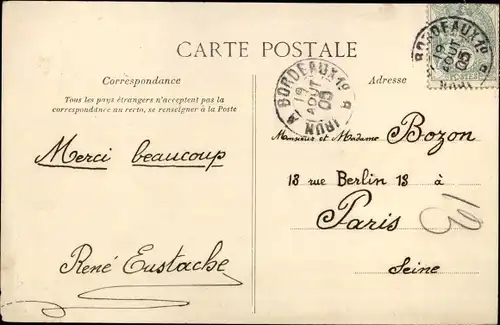 CARTE POSTALE
Correspondance
Tous les pays étrangers n'acceptent pas la
correspondance au recto, se renseigner à la Poste
Merci beaucoup
René Eustache
BORDEAUX
19
AOUT
05
IRUN
BORDEAUX
19
AOUT
05
Adresse
Monsieur et Madame Bozon
18 rue Berlin 18 à
Paris
Seine